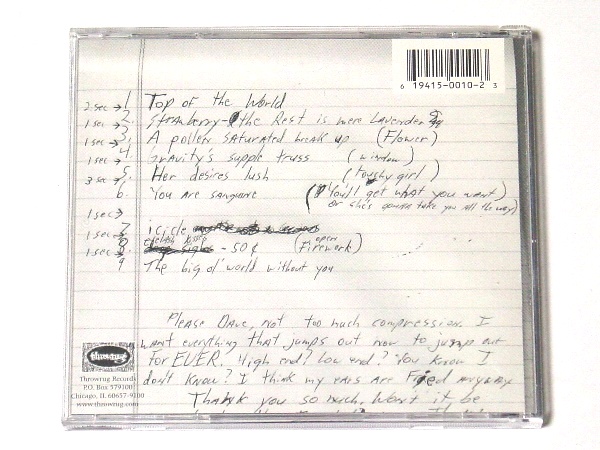 6 19415-0010-2 3
2 sec → 1 Top of the World
1 sec → 2. Strawberry - the Rest is mere Lavender
1 sec → 3. A pollen saturated break up (Flower)
1 sec → 4. Gravity's supple truss (window)
3 sec → 5. Her desires lush (touchy girl)
6. You are sanguine (You'll get what you want)
or she's gonna take you all the way)
1 sec →
1 sec → 7 icicle
1 sec → 8. - 50¢ (open Firework)
9 The big ol' world without you
Please Dave, not too much compression. I
want everything that jumps out now to jump out
for EVER. High end? Low end? You know I
don't know? I think my ears are Fried anyway
Thank you so much. Won't it be
throwrug
Throwrug Records
P.O. Box 579100
Chicago, IL 60657-9100
www.throwrug.com